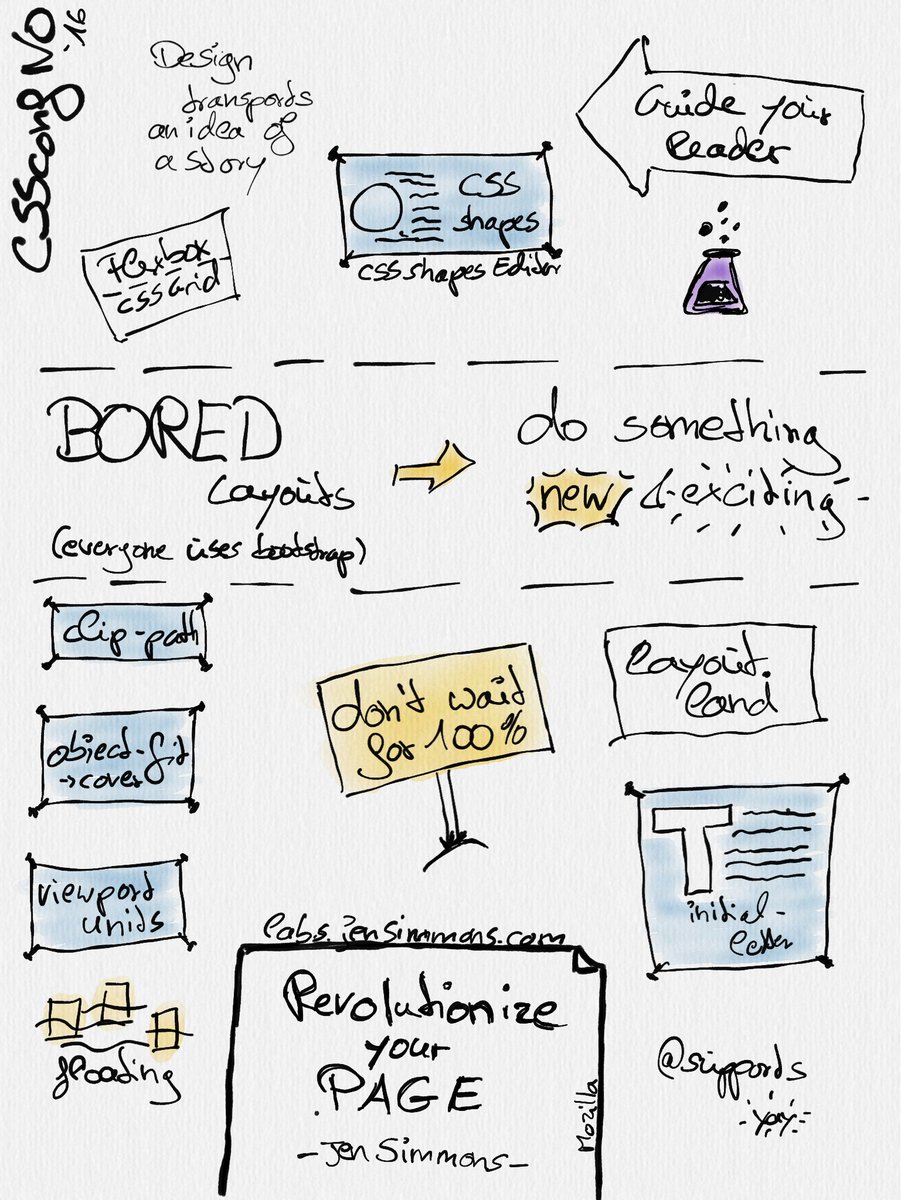 CSSconf NO
'16
Design
transports
an idea of
a story
Guide your
Reader
CSS
shapes
CSS shapes Editor
Flexbox
CSS Grid
BORED
Layouts
(everyone uses bootstrap)
do something
new & exciting
clip-path
object-fit
→ cover
viewport
units
floating
don't wait
for 100%
layout.
land
initial-
letter
labs.jensimmons.com
Revolutionize
your
PAGE
- Jen Simmons -
Mozilla
@supports
yay